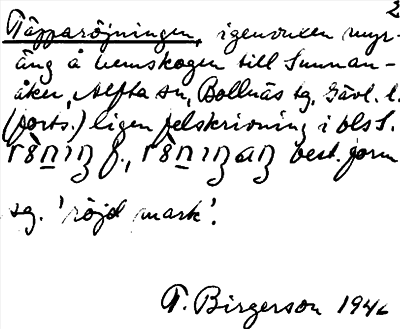 2
Täpparöjningen, igenvuxen myr-
äng å hemskogen till Sunnan-
åker, Alfta sn, Bollnäs tg, Gävl. l.
(forts.) ligen felskrivning i OLSS.
best. form
sg. 'röjd mark'.
T. Birgerson 1946